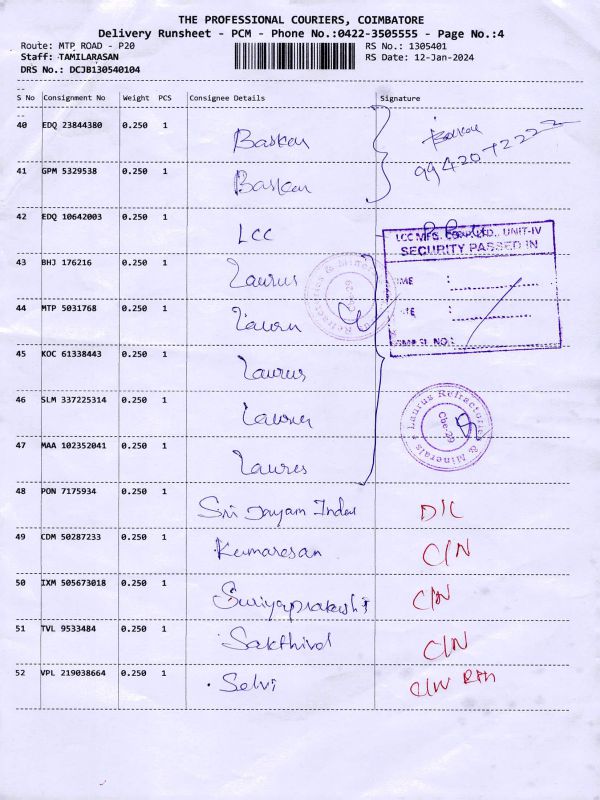 THE PROFESSIONAL COURIERS, COIMBATORE
Delivery Runsheet - PCM - Phone No.:0422-3505555 - Page No.:4
Route: MTP ROAD - P20 RS No.: 1305401
Staff: TAMILARASAN RS Date: 12-Jan-2024
DRS No.: DCJB130540104
S No Consignment No Weight PCS Consignee Details Signature
40 EDQ 23844380 0.250 1 Baskar Baskar
41 GPM 5329538 0.250 1 Baskar
42 EDQ 10642003 0.250 1 LCC
LCC MFG. UNIT-IV
SECURITY PASSED IN
43 BHJ 176216 0.250 1 Laurus
44 MTP 5031768 0.250 1 Laurus
45 KOC 61338443 0.250 1 Laurus
46 SLM 337225314 0.250 1 Laurus
Laurus Refractories & Minerals
Cbe-29
47 MAA 102352041 0.250 1 Laures
48 PON 7175934 0.250 1 Sri Jayam Indus D/L
49 CDM 50287233 0.250 1 Kumaresan C/N
50 IXM 505673018 0.250 1 Suriyaprakash C/N
51 TVL 9533484 0.250 1 Sakthivel C/N
52 VPL 219038664 0.250 1 Selvi C/N